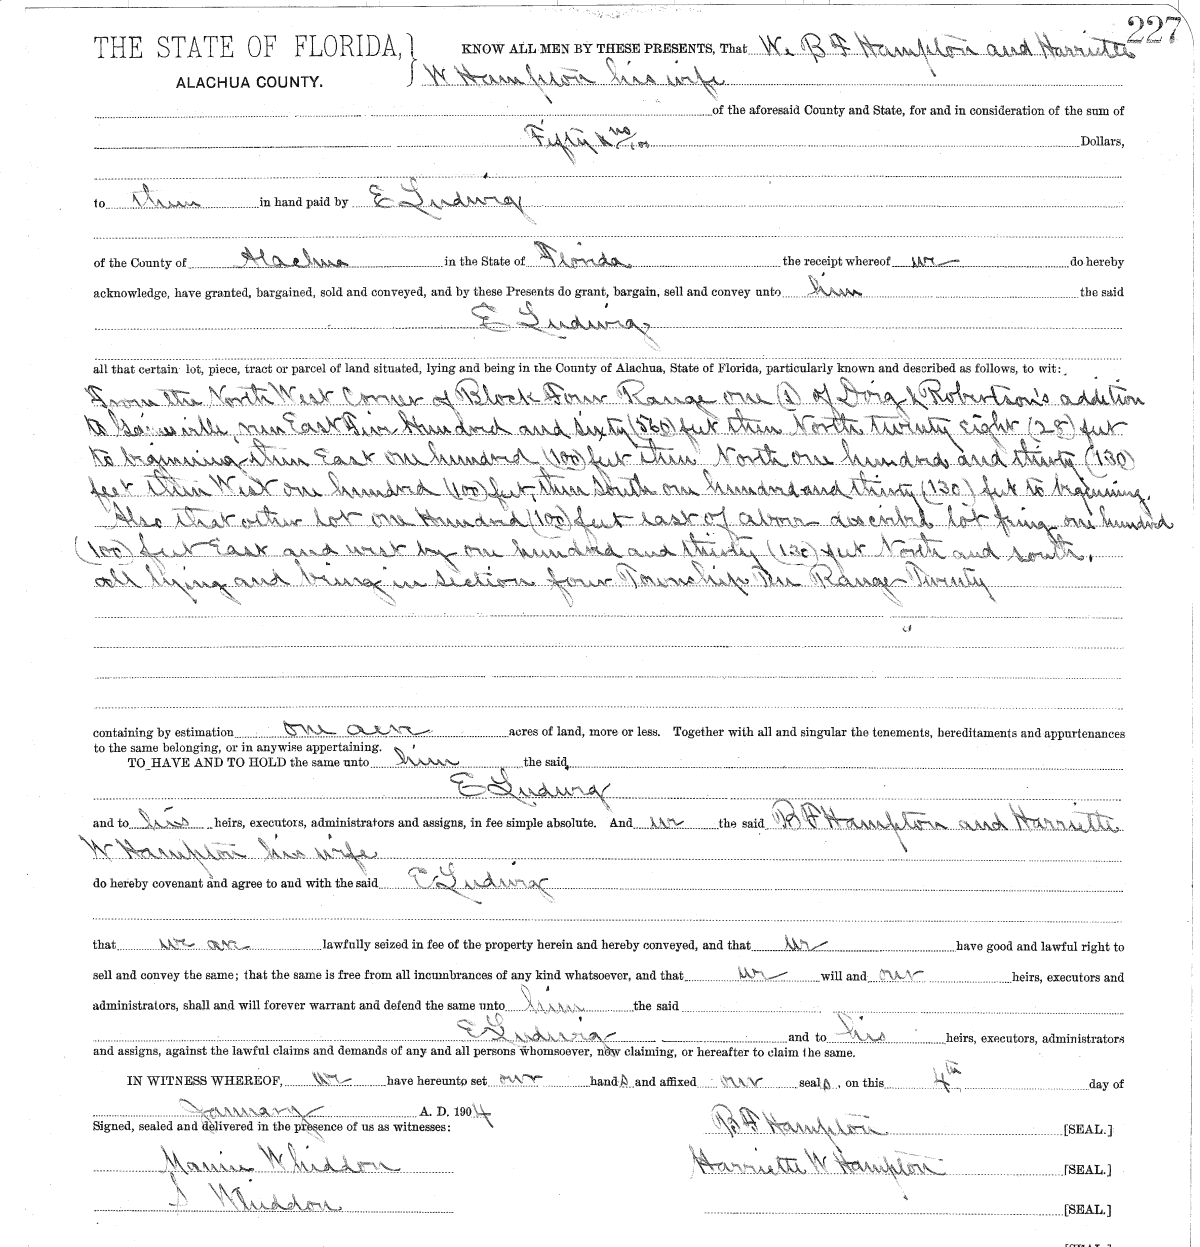 227
THE STATE OF FLORIDA, } KNOW ALL MEN BY THESE PRESENTS, That We B F Hampton and Harriette
ALACHUA COUNTY. W Hampton his wife
of the aforesaid County and State, for and in consideration of the sum of
Fifty & no/100 Dollars,
to them in hand paid by E Ludwig
of the County of Alachua in the State of Florida the receipt whereof we do hereby
acknowledge, have granted, bargained, sold and conveyed, and by these Presents do grant, bargain, sell and convey unto him the said
E Ludwig
all that certain lot, piece, tract or parcel of land situated, lying and being in the County of Alachua, State of Florida, particularly known and described as follows, to wit:
From the North West Corner of Block Four Range one (1) of Doig & Robertson's addition
to Gainesville, run East Five Hundred and Sixty (560) feet then North twenty eight (28) feet
to beginning then East one hundred (100) feet then North one hundred and thirty (130)
feet then West one hundred (100) feet, then South one hundred and thirty (130) feet to beginning.
Also that other lot one Hundred (100) feet east of above described lot being one hundred
(100) feet East and west by one hundred and thirty (130) feet North and south.
all lying and being in section four Township Ten Range Twenty
containing by estimation one acre acres of land, more or less. Together with all and singular the tenements, hereditaments and appurtenances
to the same belonging, or in anywise appertaining.
TO HAVE AND TO HOLD the same unto him the said
E Ludwig
and to his heirs, executors, administrators and assigns, in fee simple absolute. And we the said B F Hampton and Harriette
W Hampton his wife
do hereby covenant and agree to and with the said E Ludwig
that we are lawfully seized in fee of the property herein and hereby conveyed, and that we have good and lawful right to
sell and convey the same; that the same is free from all incumbrances of any kind whatsoever, and that we will and our heirs, executors and
administrators, shall and will forever warrant and defend the same unto him the said
E Ludwig and to his heirs, executors, administrators
and assigns, against the lawful claims and demands of any and all persons whomsoever, now claiming, or hereafter to claim the same.
IN WITNESS WHEREOF, we have hereunto set our hands and affixed our seals, on this 4th day of
January A. D. 1904
Signed, sealed and delivered in the presence of us as witnesses: B F Hampton [SEAL.]
Whiddon Harriette W Hampton [SEAL.]
S Whiddon [SEAL.]